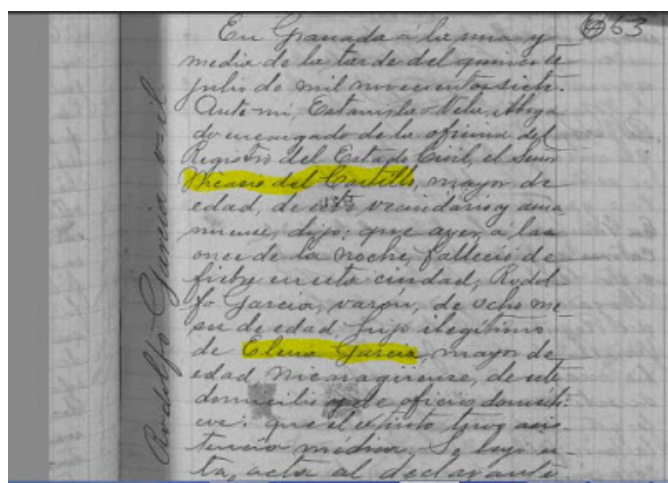 En Granada á la una y
media de la tarde del quince de
julio de mil novecientos siete.
Ante mi, Estanislao Vela, Aboga
do encargado de la oficina del
Registro del Estado Civil, el Señor
Nicasio del Castillo, mayor de
edad, de este vecindario y ama
nuense, dijo: que ayer, á las
once de la noche, falleció de
fiebre en esta ciudad, Rodol
fo Garcia, varon, de ocho me
ses de edad, hijo ilegítimo
de Elena Garcia, mayor de
edad nicaragüense, de este
domicilio y de oficios domésti
cos: que el extinto tuvo asis
tencia médica. Se leyó es
ta, acta al declarante
63
Rodolfo Garcia